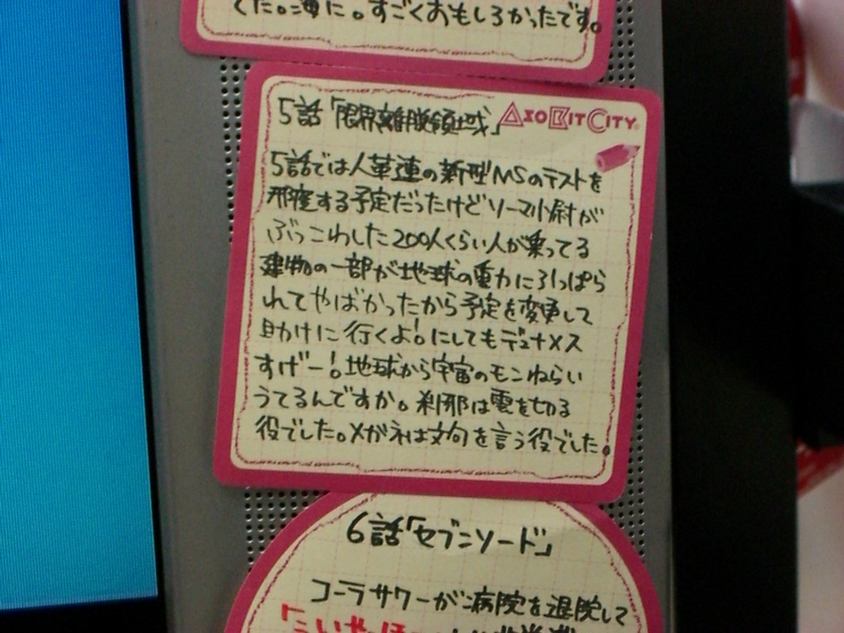 した。海に。すごくおもしろかったです。
5話「限界離脱領域」
AZO BIT CITY
5話では人革連の新型MSのテストを
邪魔する予定だったけどソーマ少尉が
ぶっこわした200人くらい人が乗ってる
建物の一部が地球の重力に引っぱら
れてやばかったから予定を変更して
助けに行くよ!にしてもデュナメス
すげー!地球から宇宙のモンねらい
うてるんですか。刹那は雲を切る
役でした。メガネは文句を言う役でした。
6話「セブンソード」
コーラサワーが病院を退院して